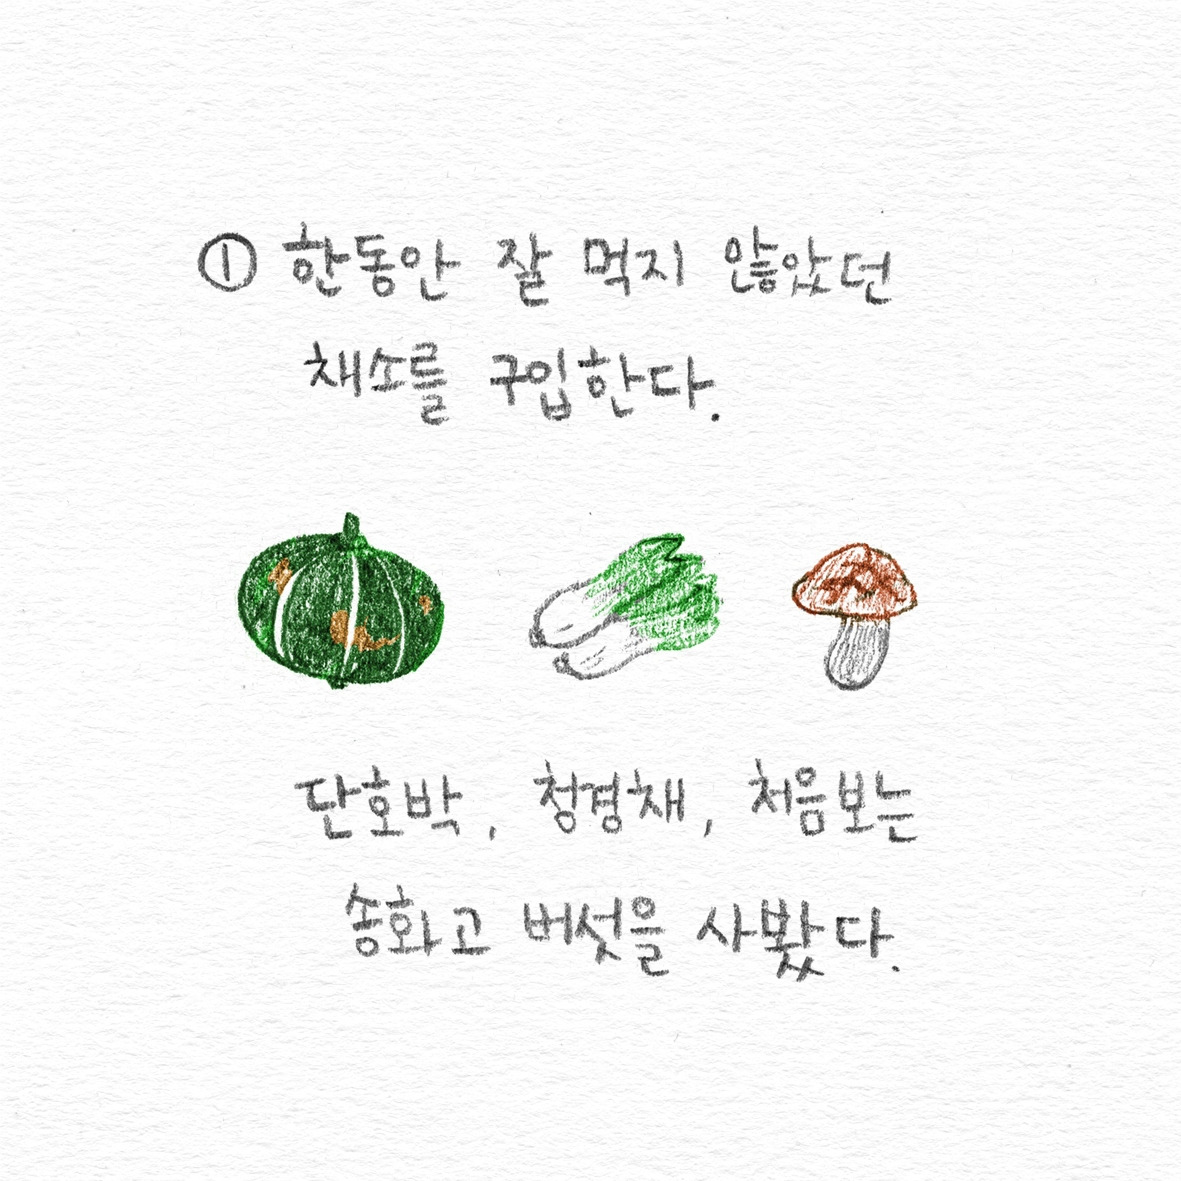 ① 한동안 잘 먹지 않았던
채소를 구입한다.
단호박, 청경채, 처음보는
송화고 버섯을 사봤다.